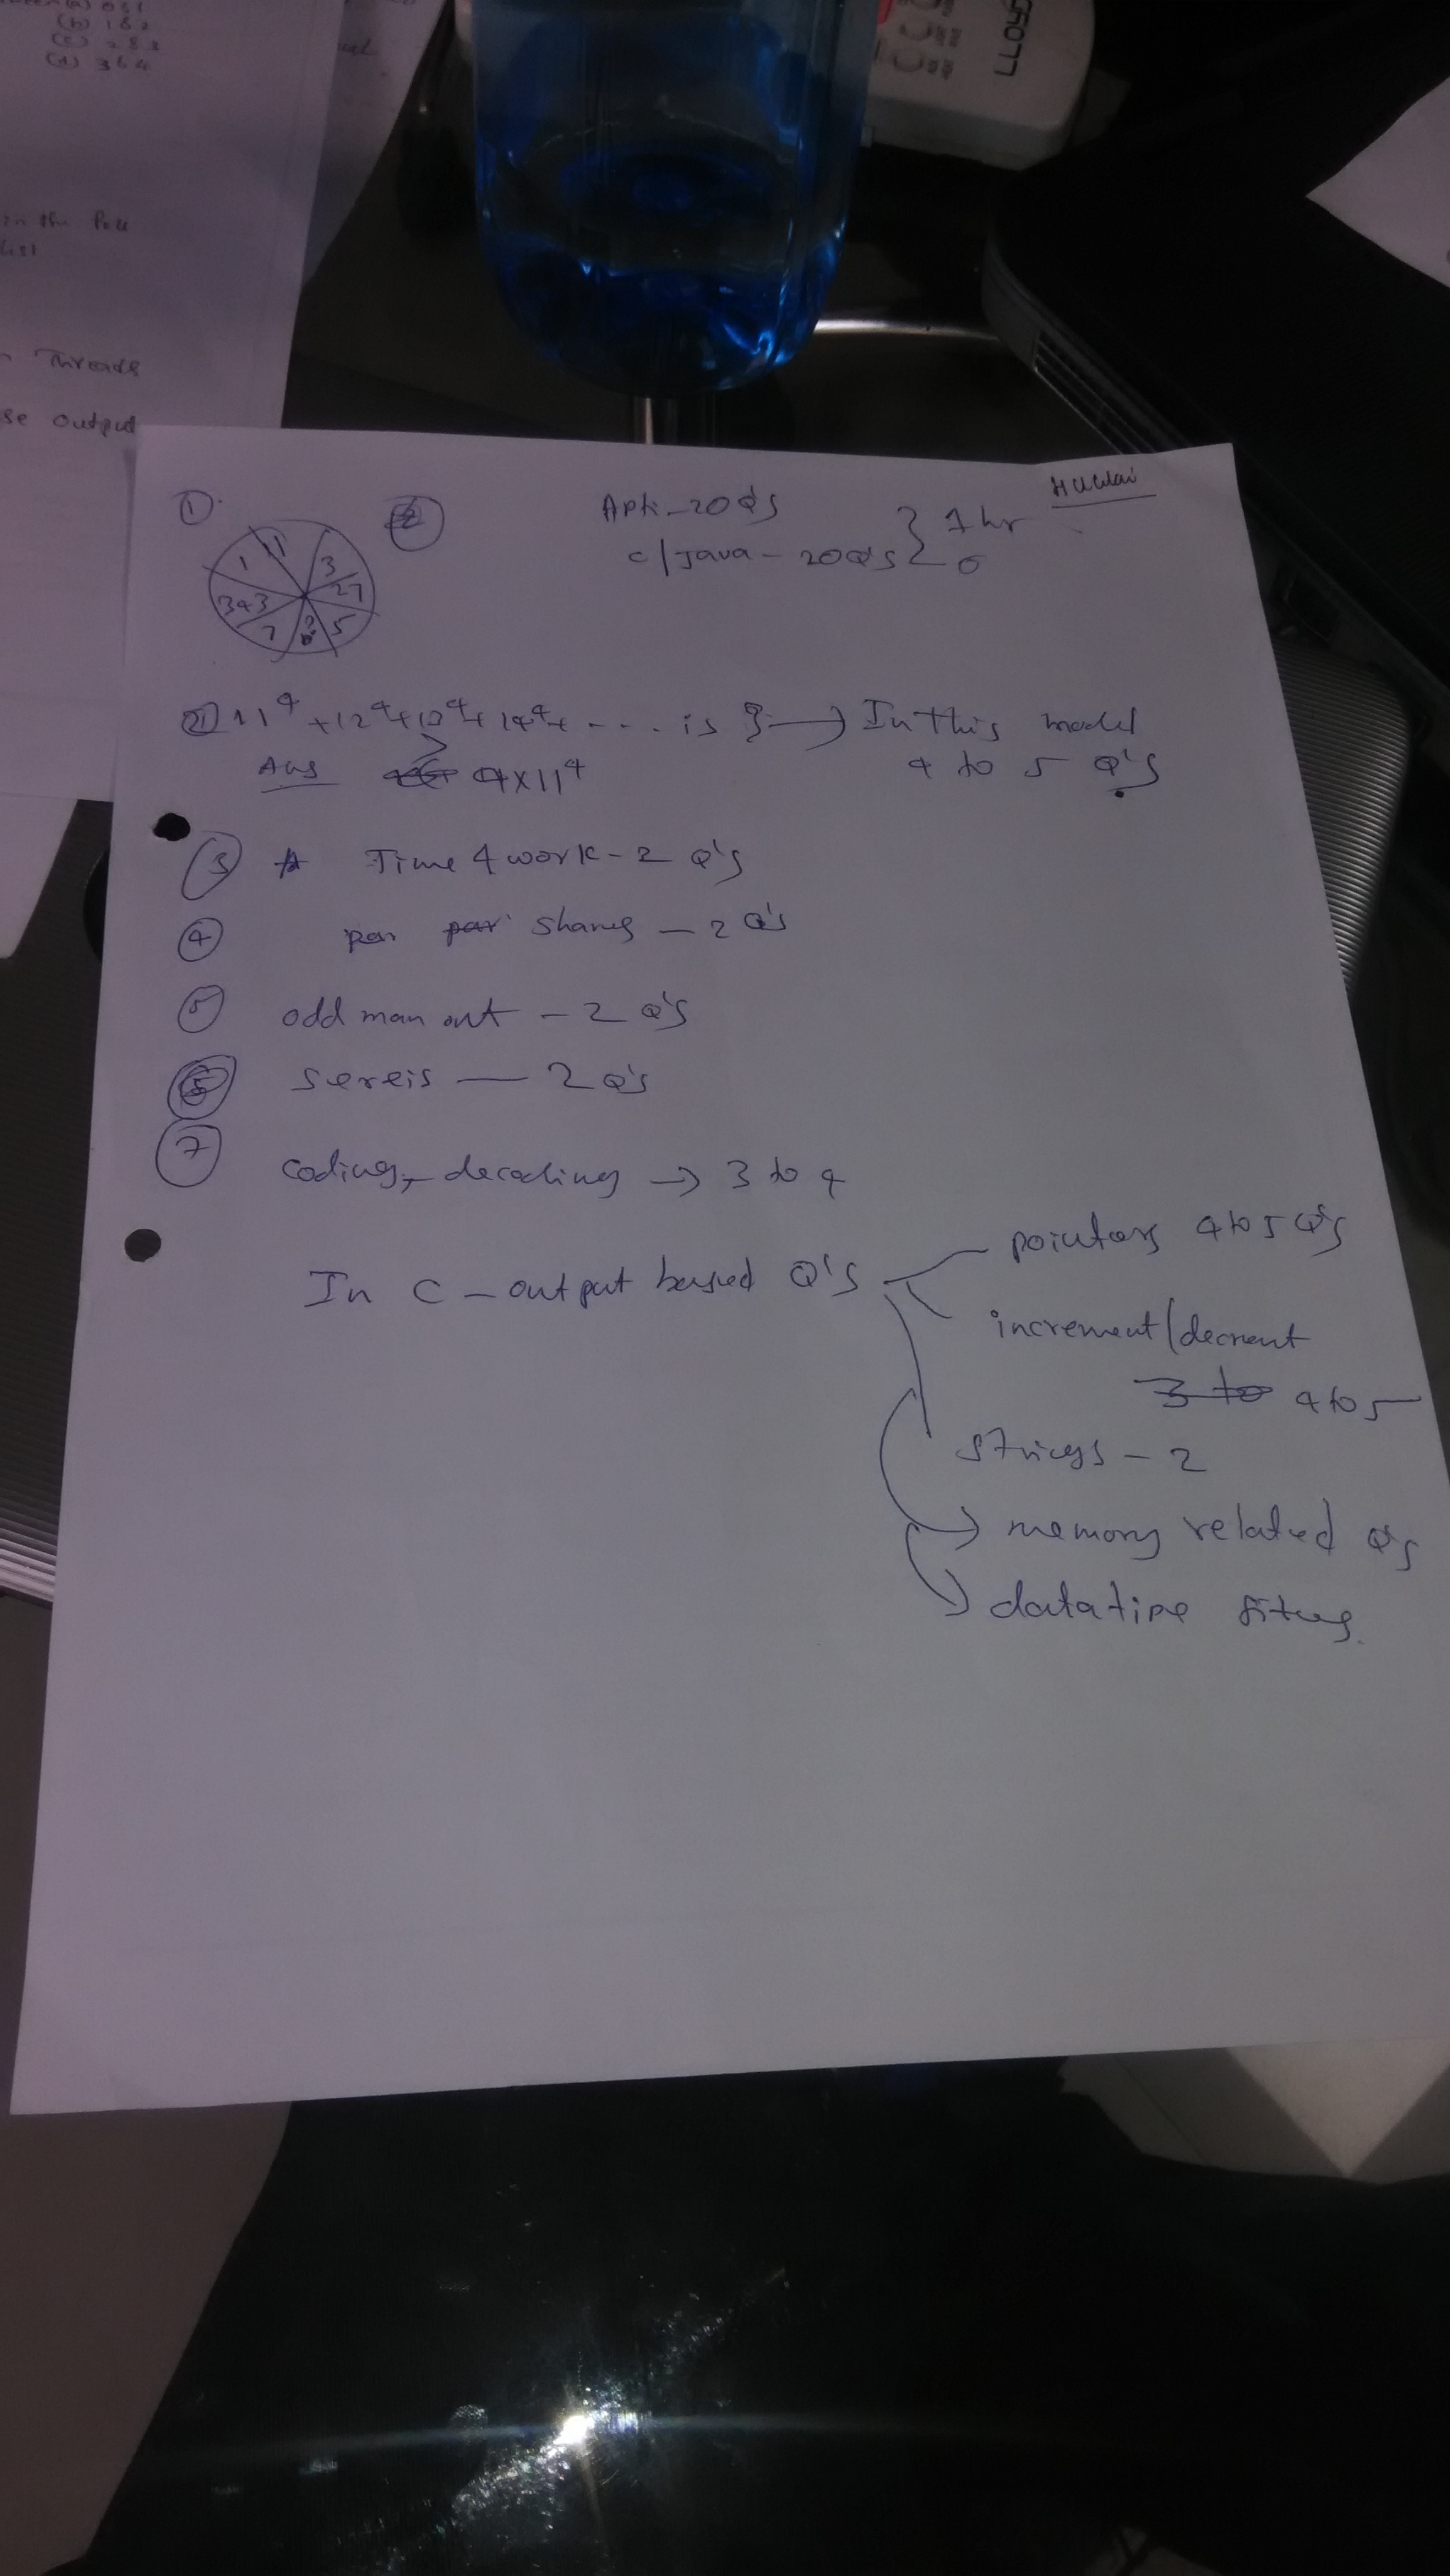 (b) 1 & 2
(c) 2 & 3
(d) 3 & 4
in the
list
Threads
se output
LLOYD
①
1 1 3 27 5 ? 7 343
Apti - 20 Q's
C/Java - 20 Q's } 1 hr
② 11⁴ + 12⁴ + 13⁴ + 14⁴ + - - . . is ? → In this model
4 to 5 Q's
Ans 4x11⁴
③ Time & work - 2 Q's
④ par shares - 2 Q's
⑤ odd man out - 2 Q's
sereis - 2 Q's
⑦ coding, decoding → 3 to 4
In C - output based Q's
pointers 4 to 5 Q's
increment/decrent
3 to 4 to 5
strings - 2
→ memory related Q's
→ datatipe